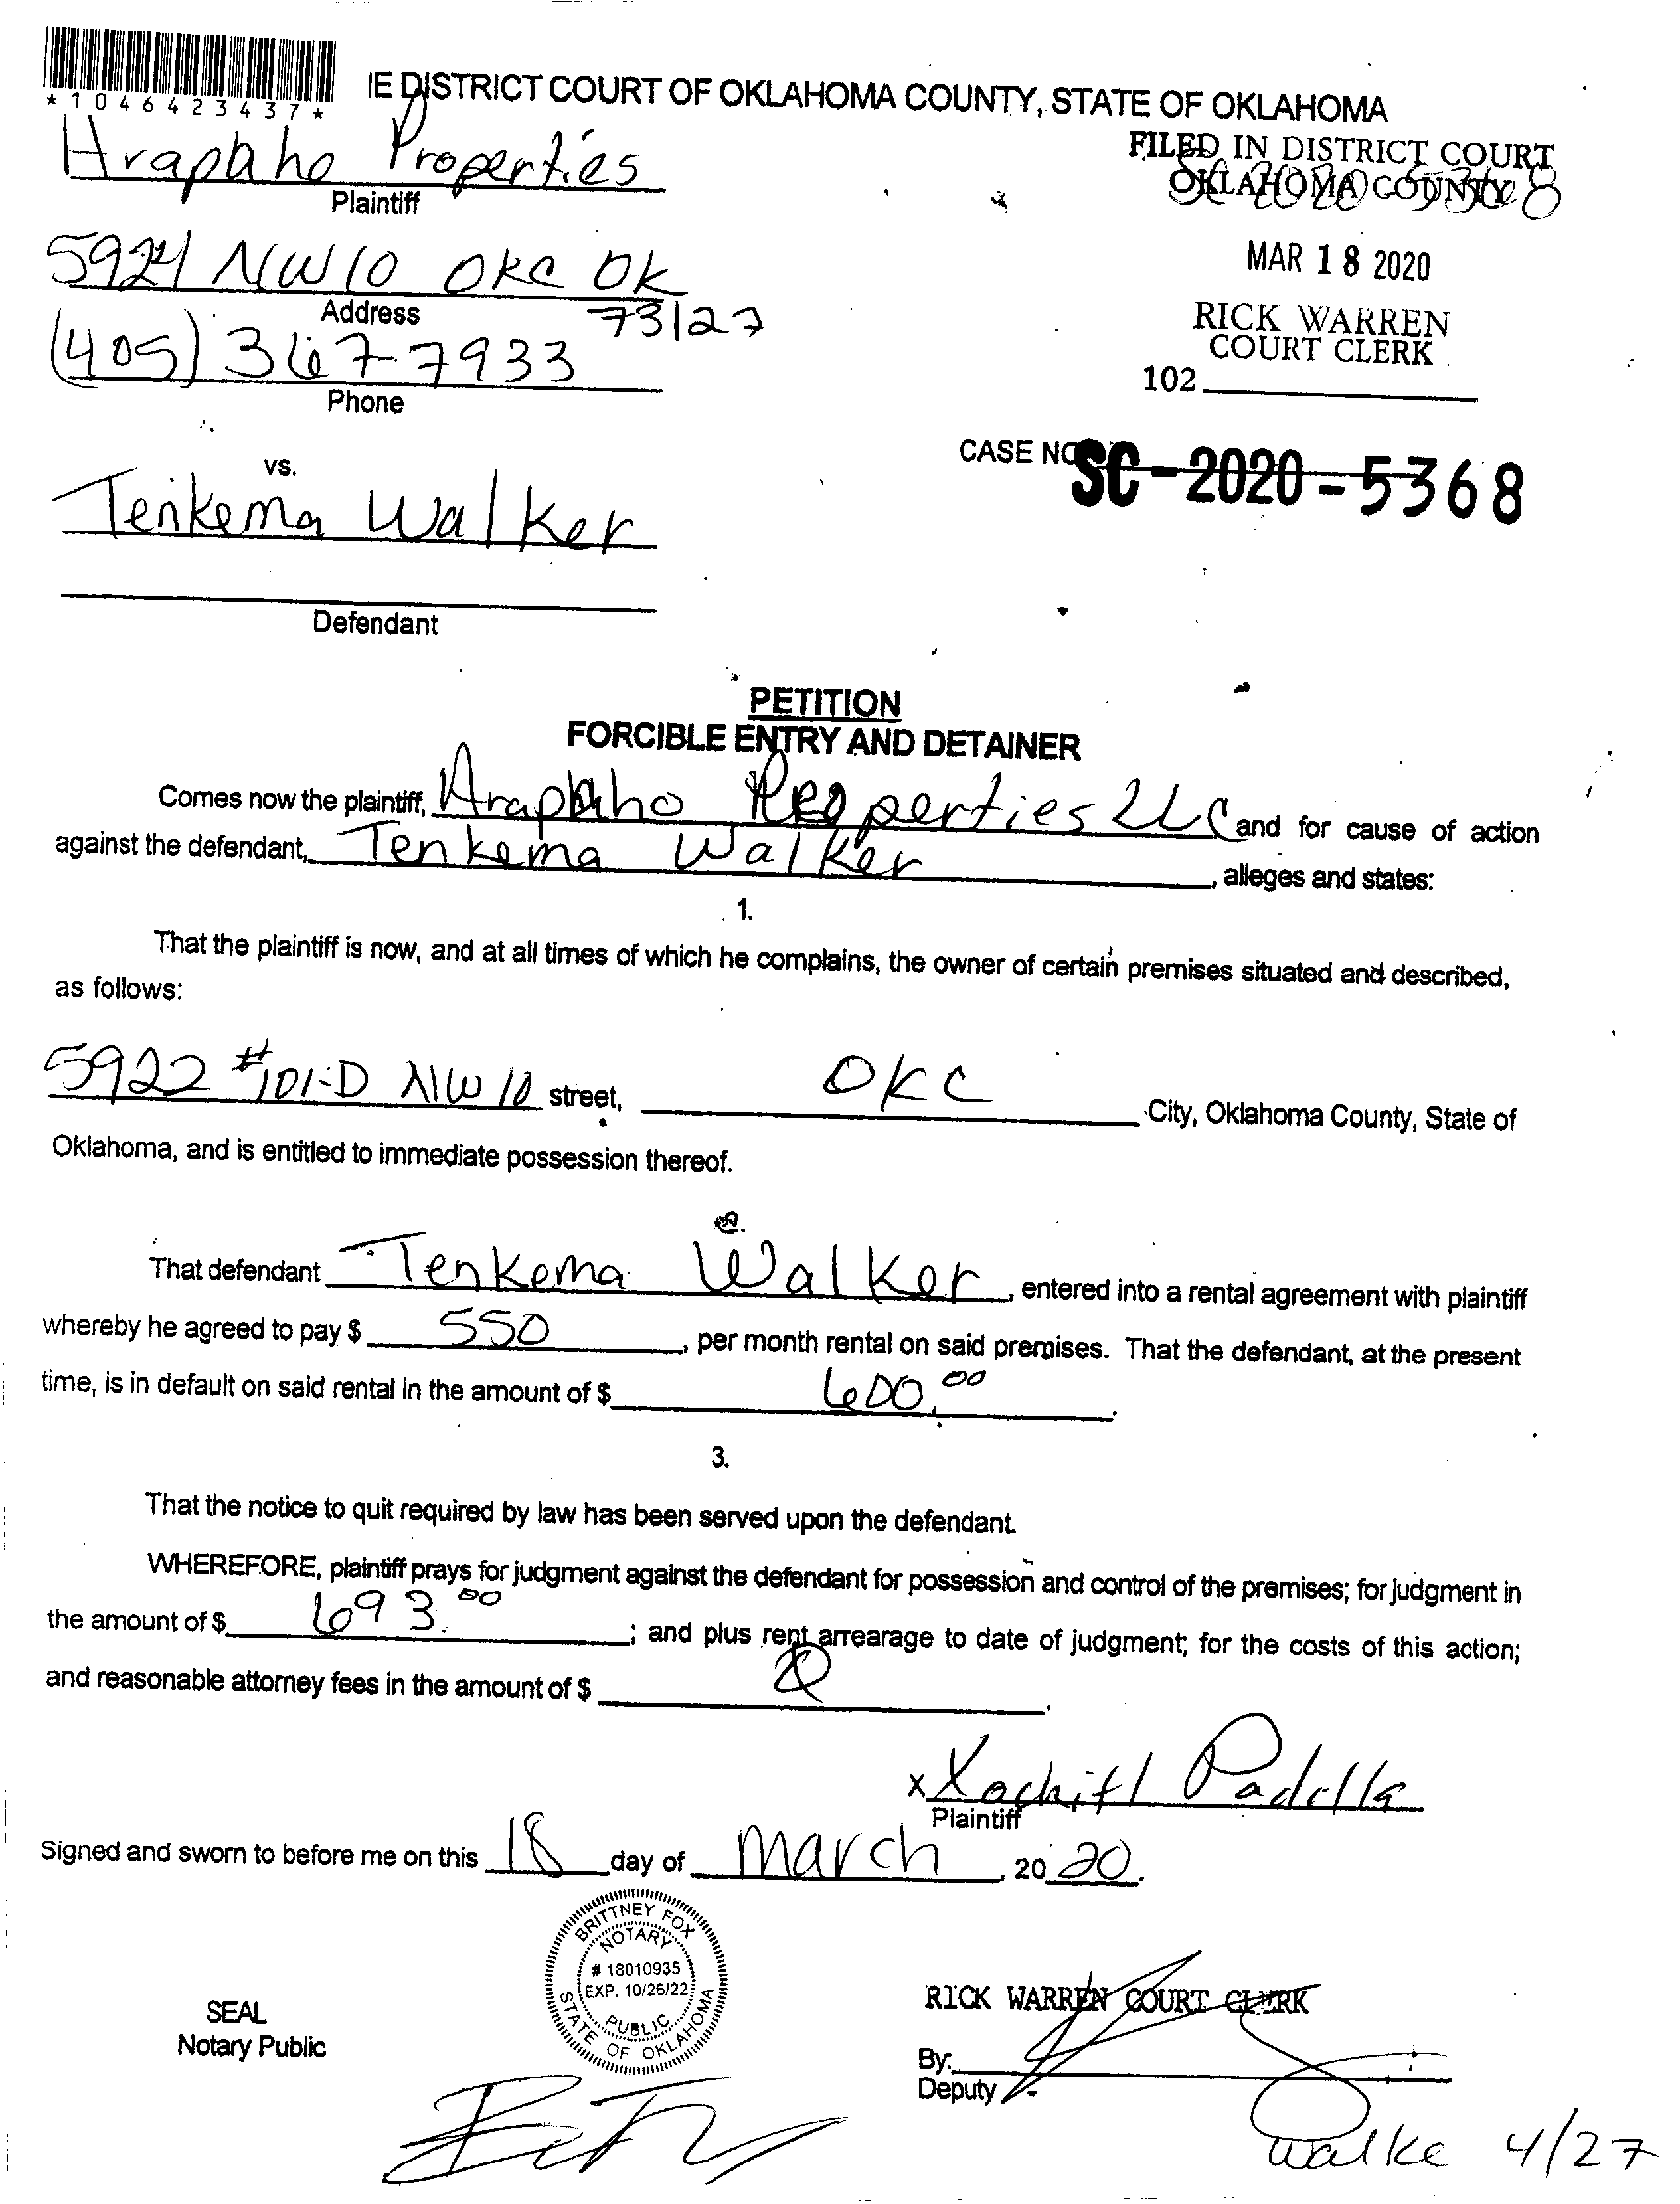 *1046423437*
IE DISTRICT COURT OF OKLAHOMA COUNTY, STATE OF OKLAHOMA
Arapaho Properties
Plaintiff
FILED IN DISTRICT COURT
OKLAHOMA COUNTY
SC 2020 5368
5924 NW 10 OKC OK
Address
73127
MAR 18 2020
(405) 367-7933
Phone
RICK WARREN
COURT CLERK
102
vs.
CASE NO SC-2020-5368
Tenkema Walker
Defendant
PETITION
FORCIBLE ENTRY AND DETAINER
Comes now the plaintiff, Arapaho Properties LLC and for cause of action
against the defendant, Tenkema Walker, alleges and states:
1.
That the plaintiff is now, and at all times of which he complains, the owner of certain premises situated and described,
as follows:
5922 #101-D NW 10 street, OKC City, Oklahoma County, State of
Oklahoma, and is entitled to immediate possession thereof.
2.
That defendant Tenkema Walker, entered into a rental agreement with plaintiff
whereby he agreed to pay $ 550, per month rental on said premises. That the defendant, at the present
time, is in default on said rental in the amount of $ 600.00.
3.
That the notice to quit required by law has been served upon the defendant.
WHEREFORE, plaintiff prays for judgment against the defendant for possession and control of the premises; for judgment in
the amount of $ 693.00; and plus rent arrearage to date of judgment; for the costs of this action;
and reasonable attorney fees in the amount of $
x Xochitl Padilla
Plaintiff
Signed and sworn to before me on this 18 day of March, 2020.
BRITTNEY FOX
NOTARY
# 18010935
EXP. 10/26/22
PUBLIC
STATE OF OKLAHOMA
SEAL
Notary Public
RICK WARREN COURT CLERK
By:
Deputy
Walke 4/27